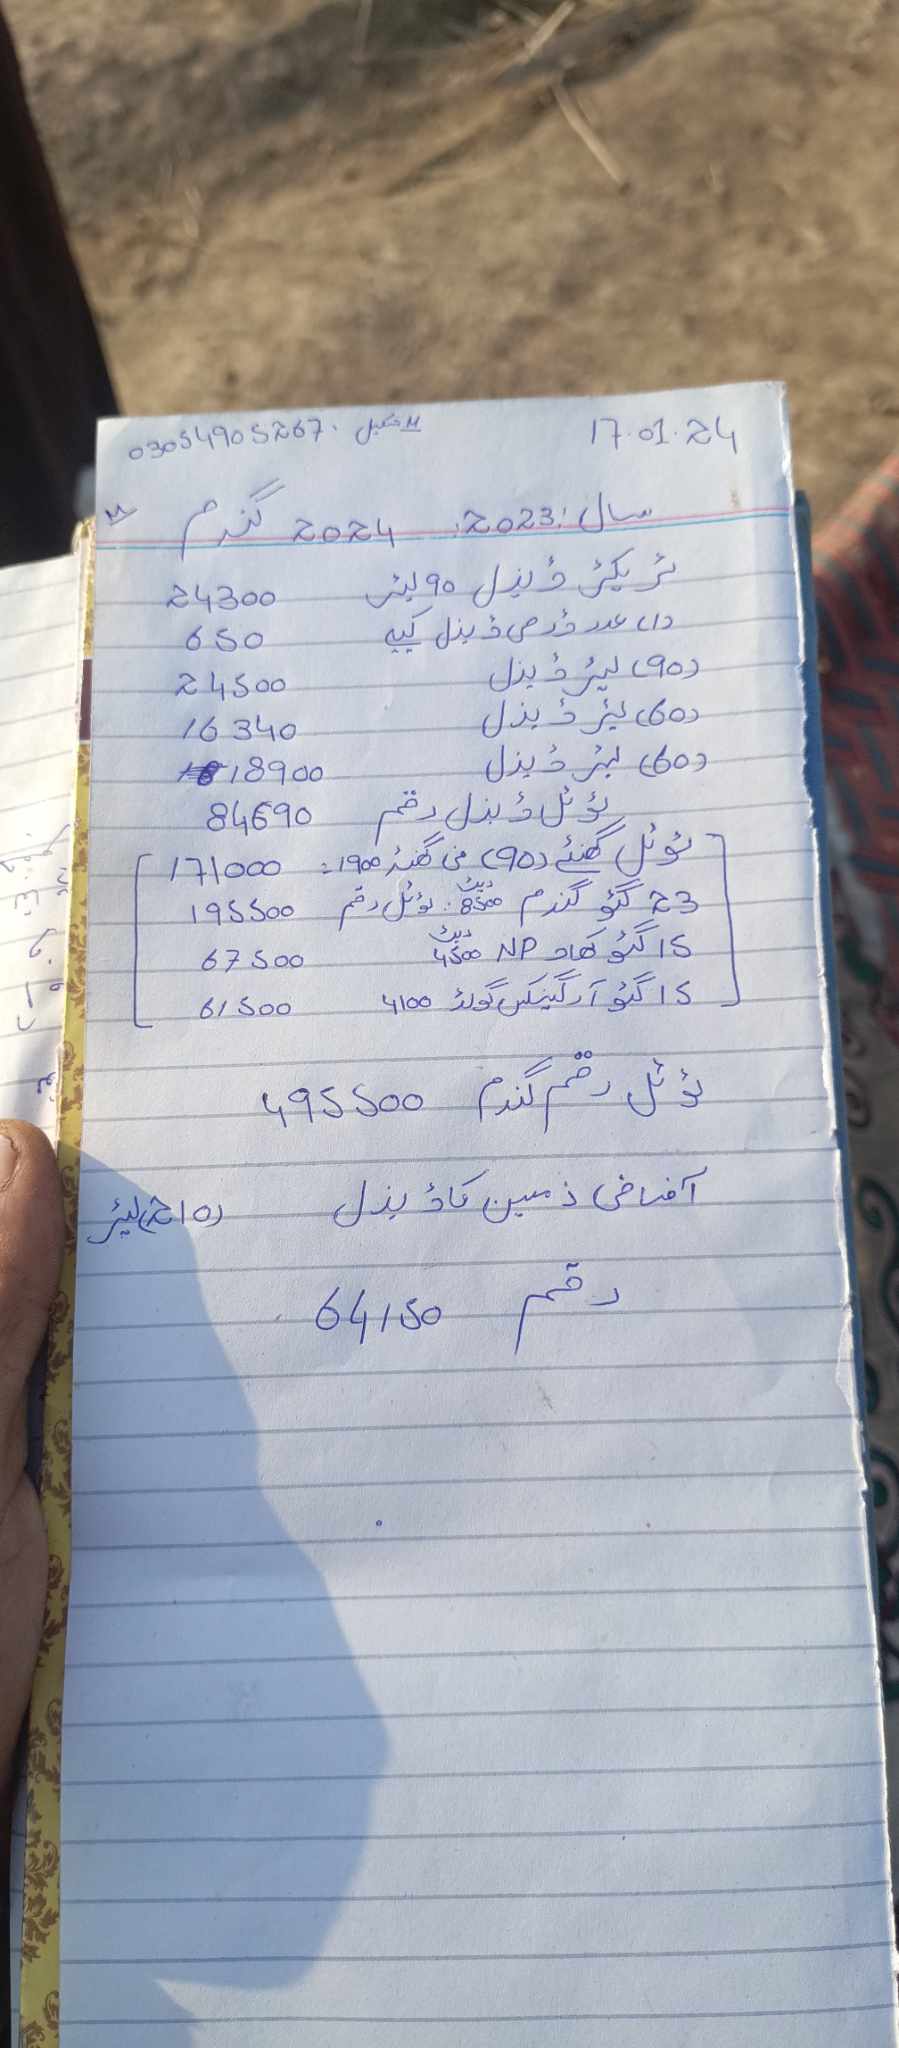 17.01.24 03054905267.
سال 2023، 2024 گندم
ٹریکٹر ڈیزل 90 لیٹر 24300
(1) عدد ڈرم ڈیزل کیلیے 650
(90) لیٹر ڈیزل 24500
(60) لیٹر ڈیزل 16340
(60) لیٹر ڈیزل 18900
ٹوٹل ڈیزل رقم 84690
ٹوٹل گھنٹے (90) فی گھنٹہ 1900 = 171000
23 گٹو گندم ریٹ 8500 ٹوٹل رقم 195500
15 گٹو کھاد NP ریٹ 4500 67500
15 گٹو آرگینکس گولڈ 4100 61500
ٹوٹل رقم گندم 495500
زمین کا ڈیزل (210) لیٹر
رقم 64150